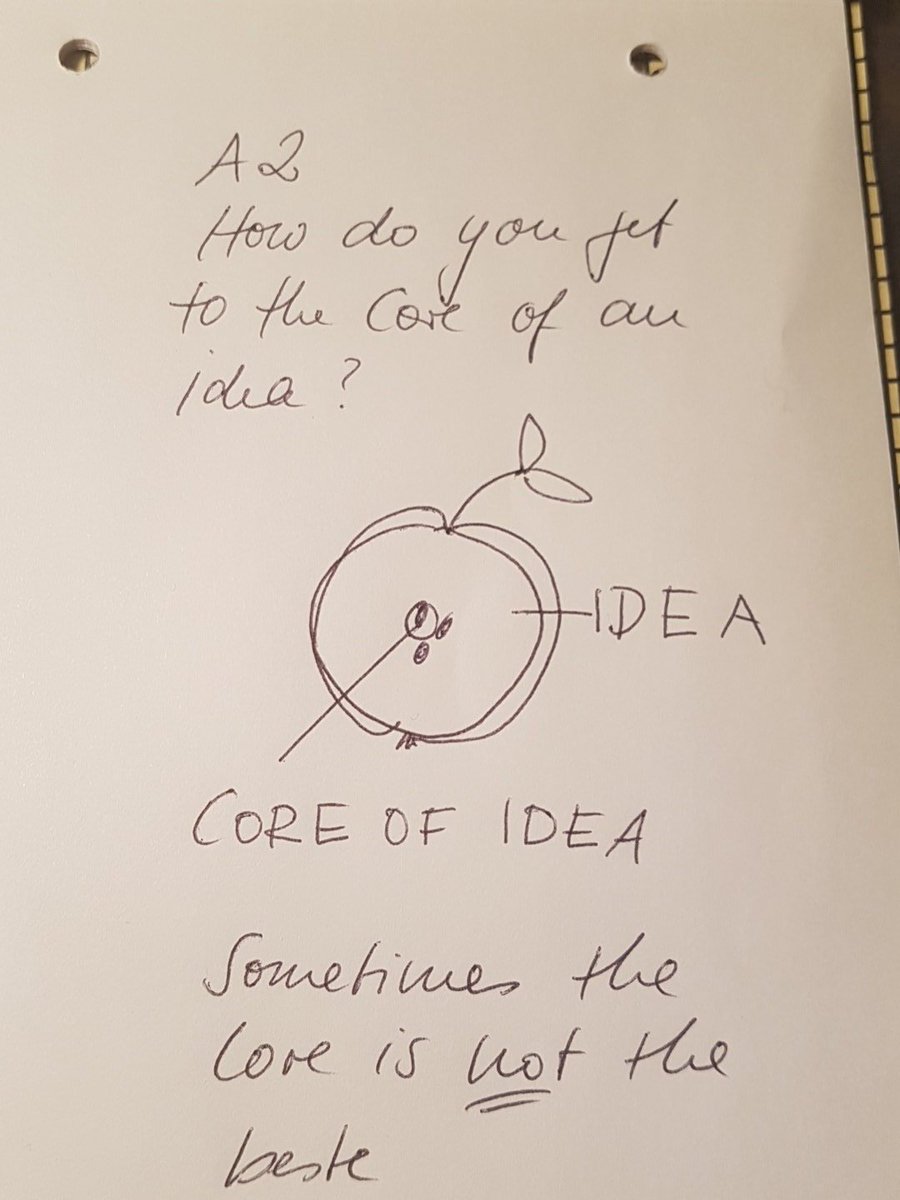 A2
How do you get
to the Core of an
idea?
IDEA
CORE OF IDEA
Sometimes the
Core is not the
beste